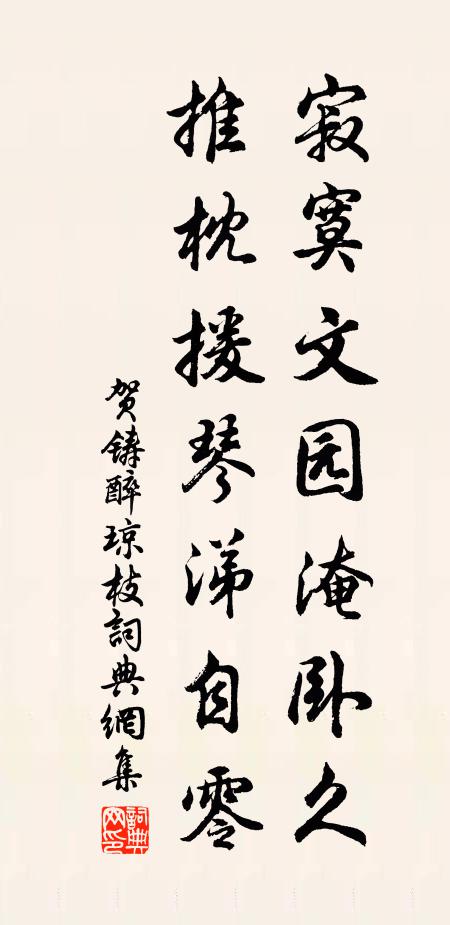 寂寞文园淹卧久
推枕援琴涕自零
贺铸醉琼枝詞典網集
詞典网印